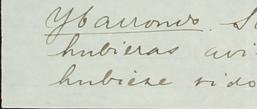 Ybarrondo. S
hubieras avi
hubiese sido